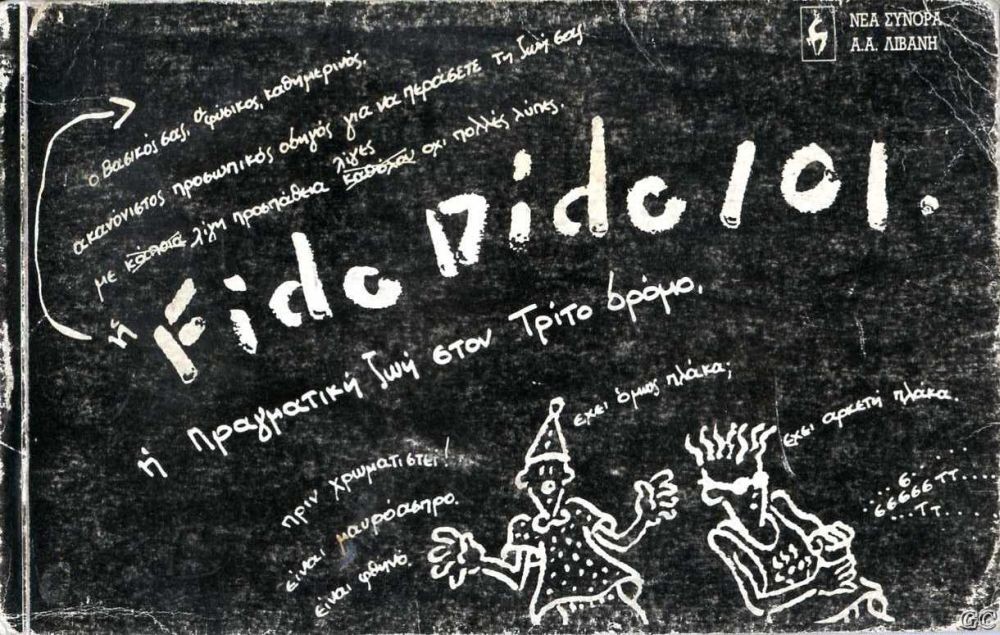 ΝΕΑ ΣΥΝΟΡΑ
Α.Α. ΛΙΒΑΝΗ
ο βασικός σας, φυσικός, καθημερινός,
ακανόνιστος προσωπικός οδηγός για να περάσετε τη ζωή σας
με κάποια λίγη προσπάθεια λίγες καθόλου οχι πολλές λύπες.
ή Fido Dido 101.
ή πραγματική ζωή στον Τρίτο δρόμο.
πριν χρωματιστεί!
είναι μαυρόασπρο.
είναι φθηνό.
έχει όμως πλάκα;
έχει αρκετή πλάκα.
...6......
6666ΤΤ....
...ΤΤ...
GC